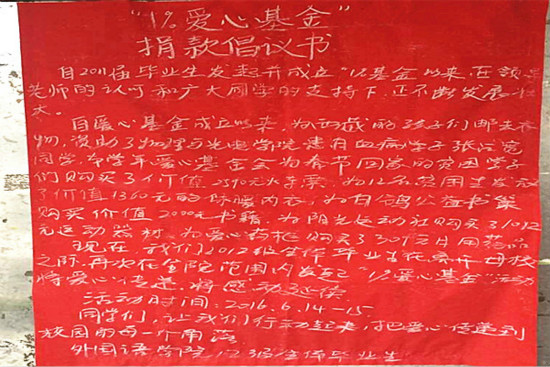 “1%爱心基金”
捐款倡议书
自2011届毕业生发起并成立“1%基金”以来,在领
老师的认可和广大同学的支持下,正不断发展壮
大。
自爱心基金成立以来,为西藏的孩子们邮去衣
物,资助了物理与光电学院患白血病学子张
同学,本学年爱心基金会为春节回家的贫困学子
们购买了价值2390元火车票,为12名贫困生发放
了价值1360元的保暖内衣,为白鸽公益书集
购买价值2000元书籍,为阳光运动社购买了1012
元运动器材,为爱心药柜购买了309元日用药品
现在,我们2012级全体毕业生在离开母校
之际,再次在全院范围内发起“1%爱心基金”活动
将爱心传递,将感动延续
活动时间:2016.6.14-15.
同学们,让我们行动起来,把爱心传递到
校园的每一个角落
外国语学院12级全体毕业生